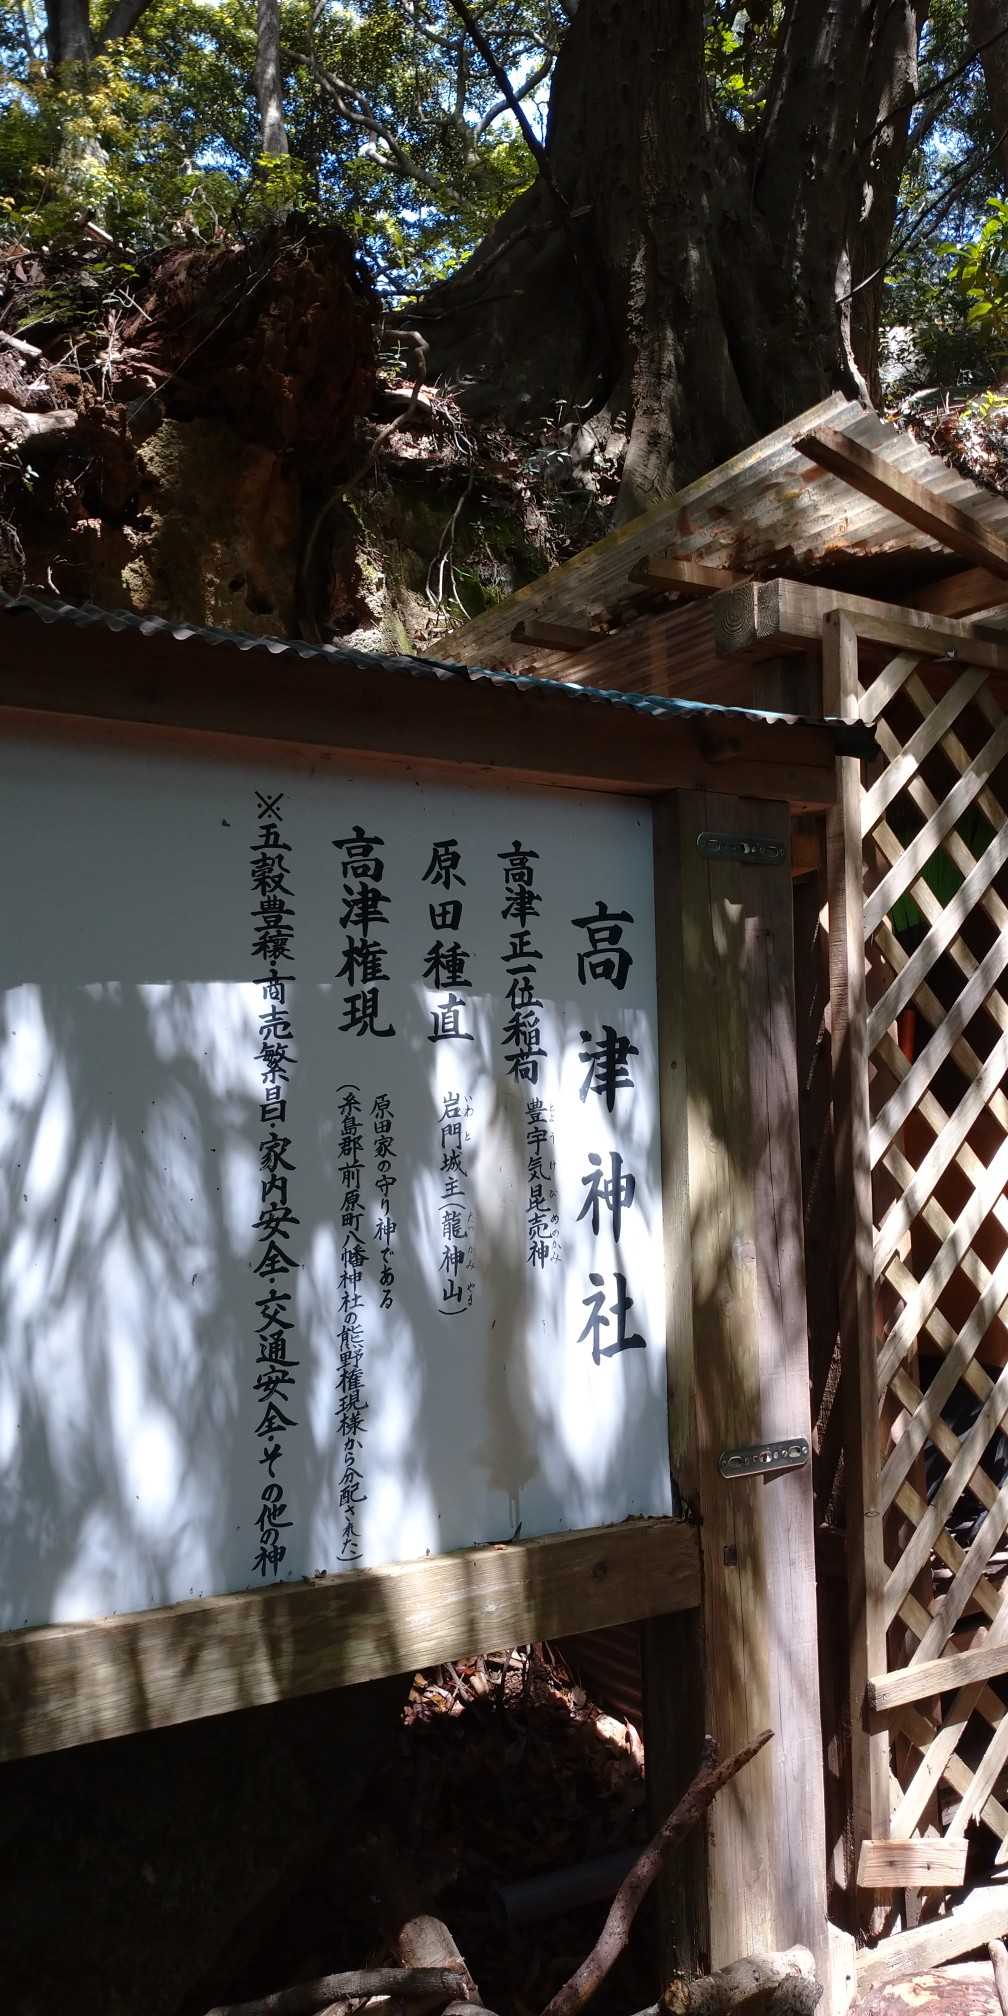 高津神社
高津正一位稲荷 豊宇気昆売神
とようけひめのかみ
原田種直 岩門城主(龍神山)
いわと たつがみやま
高津権現 原田家の守り神である
(糸島郡前原町八幡神社の熊野権現様から分配された)
※五穀豊穣・商売繁昌・家内安全・交通安全・その他の神